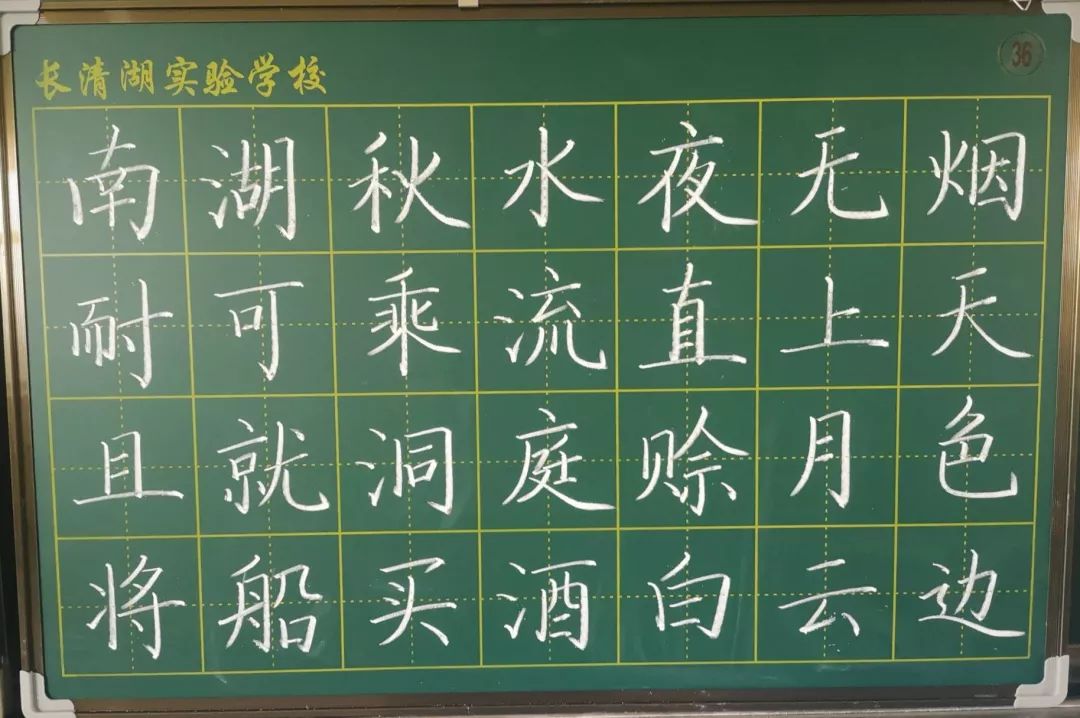 长清湖实验学校
36
南湖秋水夜无烟
耐可乘流直上天
且就洞庭赊月色
将船买酒白云边